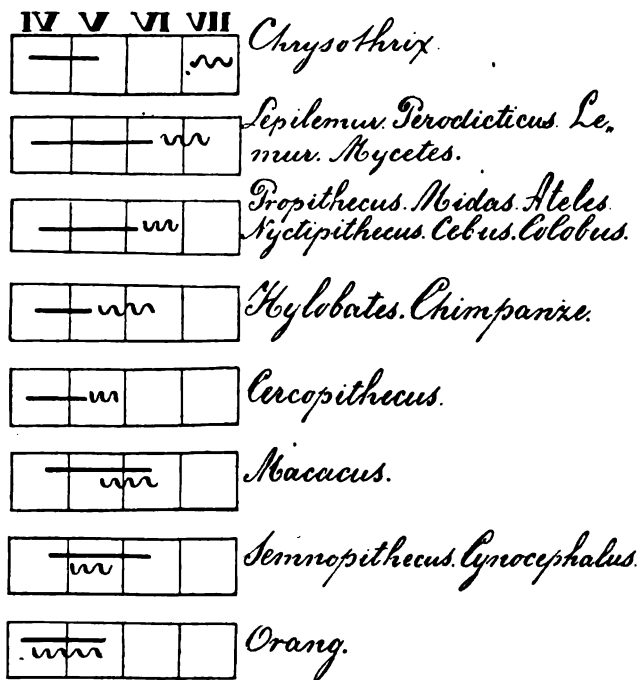 IV V VI VII
Chrysothrix.
Lepilemur. Perodicticus. Le„
mur. Mycetes.
Propithecus. Midas. Ateles.
Nyctipithecus. Cebus. Colobus.
Hylobates. Chimpanze.
Cercopithecus.
Macacus.
Semnopithecus. Cynocephalus.
Orang.